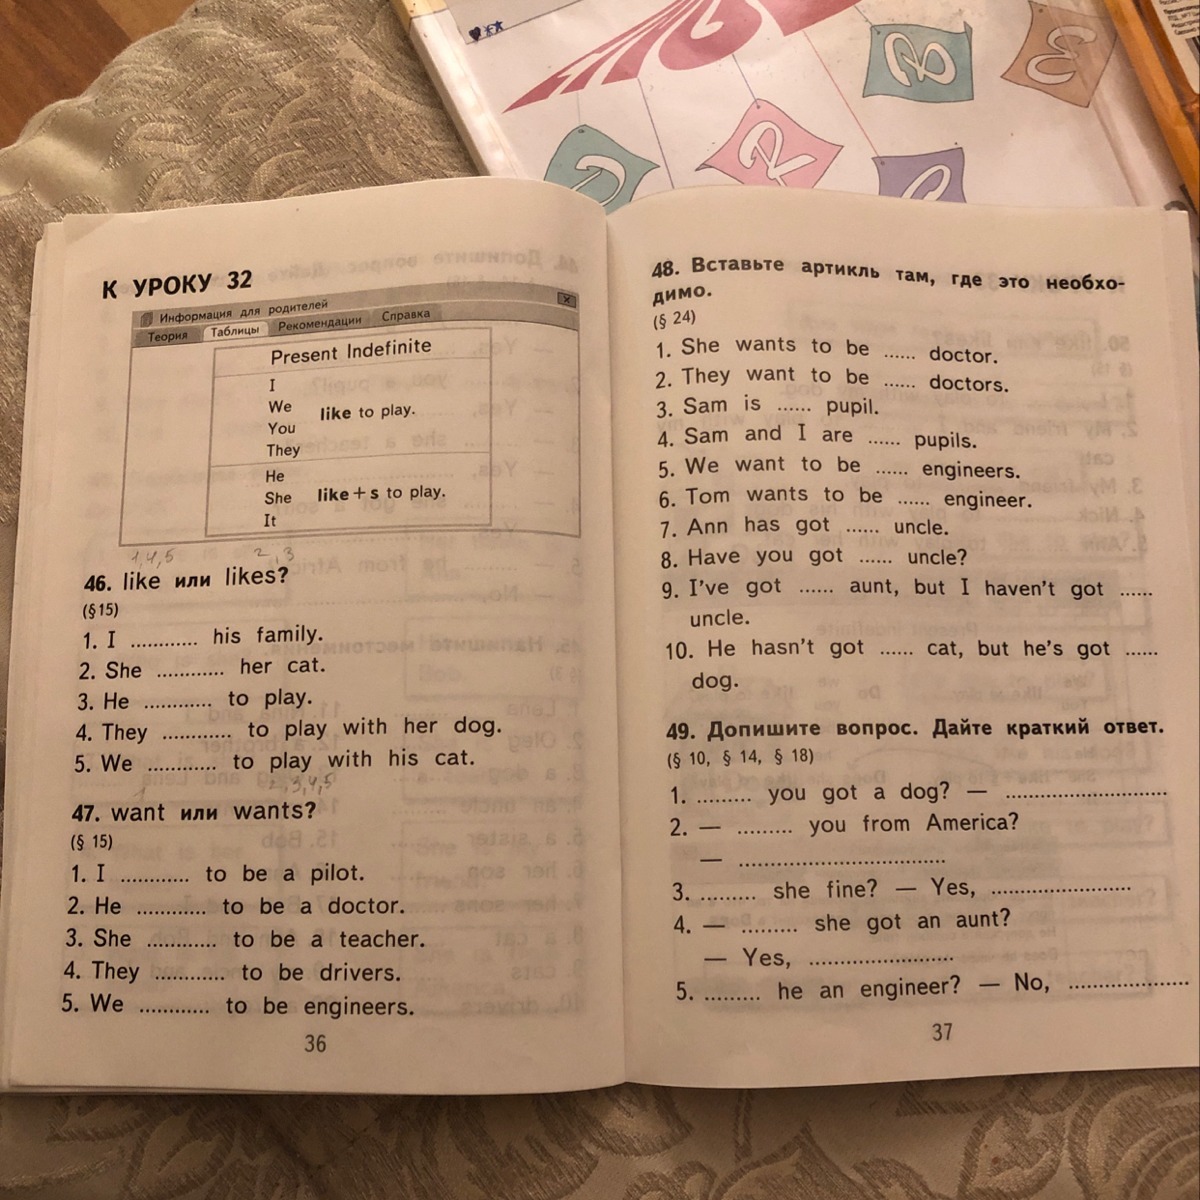 К УРОКУ 32
Информация для родителей
Теория Таблицы Рекомендации Справка
Present Indefinite
I
We
You
They
like to play.
He
She
It
like+s to play.
1,4,5 2,3
46. like или likes?
(§15)
1. I ............ his family.
2. She ............ her cat.
3. He ............ to play.
4. They ............ to play with her dog.
5. We ............ to play with his cat.
2,3,4,5
47. want или wants?
(§ 15)
1. I ............ to be a pilot.
2. He ............ to be a doctor.
3. She ............ to be a teacher.
4. They ............ to be drivers.
5. We ............ to be engineers.
36
48. Вставьте артикль там, где это необхо-
димо.
(§ 24)
1. She wants to be ...... doctor.
2. They want to be ...... doctors.
3. Sam is ...... pupil.
4. Sam and I are ...... pupils.
5. We want to be ...... engineers.
6. Tom wants to be ...... engineer.
7. Ann has got ...... uncle.
8. Have you got ...... uncle?
9. I've got ...... aunt, but I haven't got ......
uncle.
10. He hasn't got ...... cat, but he's got ......
dog.
49. Допишите вопрос. Дайте краткий ответ.
(§ 10, § 14, § 18)
1. ......... you got a dog? — ..........................
2. — ......... you from America?
— .................................
3. ......... she fine? — Yes, ......................
4. — ......... she got an aunt?
— Yes, .......................
5. ......... he an engineer? — No, ...................
37